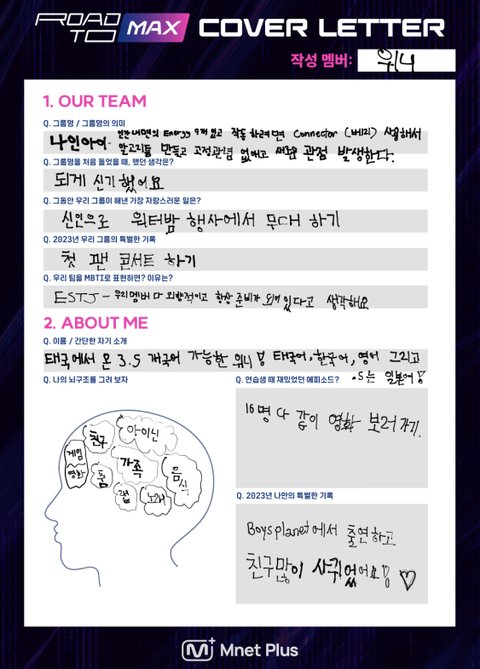 ROAD TO MAX COVER LETTER
작성 멤버: 위니
1. OUR TEAM
Q. 그룹명 / 그룹명의 의미
나인아이- 인간 내면의 Energy 9개 있고 작동 하려면 Connector (베리) 사용해서
알고리듬 만들고 고정관념 없애고 새로운 관점 발생한다.
Q. 그룹명을 처음 들었을 때, 했던 생각은?
되게 신기했어요
Q. 그동안 우리 그룹이 해낸 가장 자랑스러운 일은?
신인으로 워터밤 행사에서 무대 하기
Q. 2023년 우리 그룹의 특별한 기록
첫 팬 콘서트 하기
Q. 우리 팀을 MBTI로 표현하면? 이유는?
ESTJ - 우리멤버 다 외향적이고 항상 준비가 되어 있다고 생각해요
2. ABOUT ME
Q. 이름 / 간단한 자기 소개
태국에서 온 3.5 개국어 가능한 위니 태국어, 한국어, 영어 그리고
.5는 일본어
Q. 나의 뇌구조를 그려 보자
친구
아이닌
게임
영화
춤
가족
음식
랩
노래
Q. 연습생 때 재밌었던 에피소드?
10명 다 같이 영화 보러 가기.
Q. 2023년 나만의 특별한 기록
Boysplanet에서 출연하고
친구많이 사귀었어요! ♡
Mnet Plus